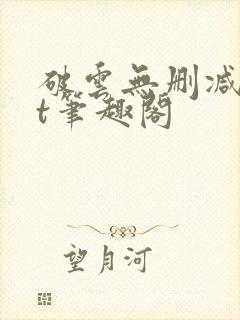 破雲無刪减
t筆趣閣
望月河